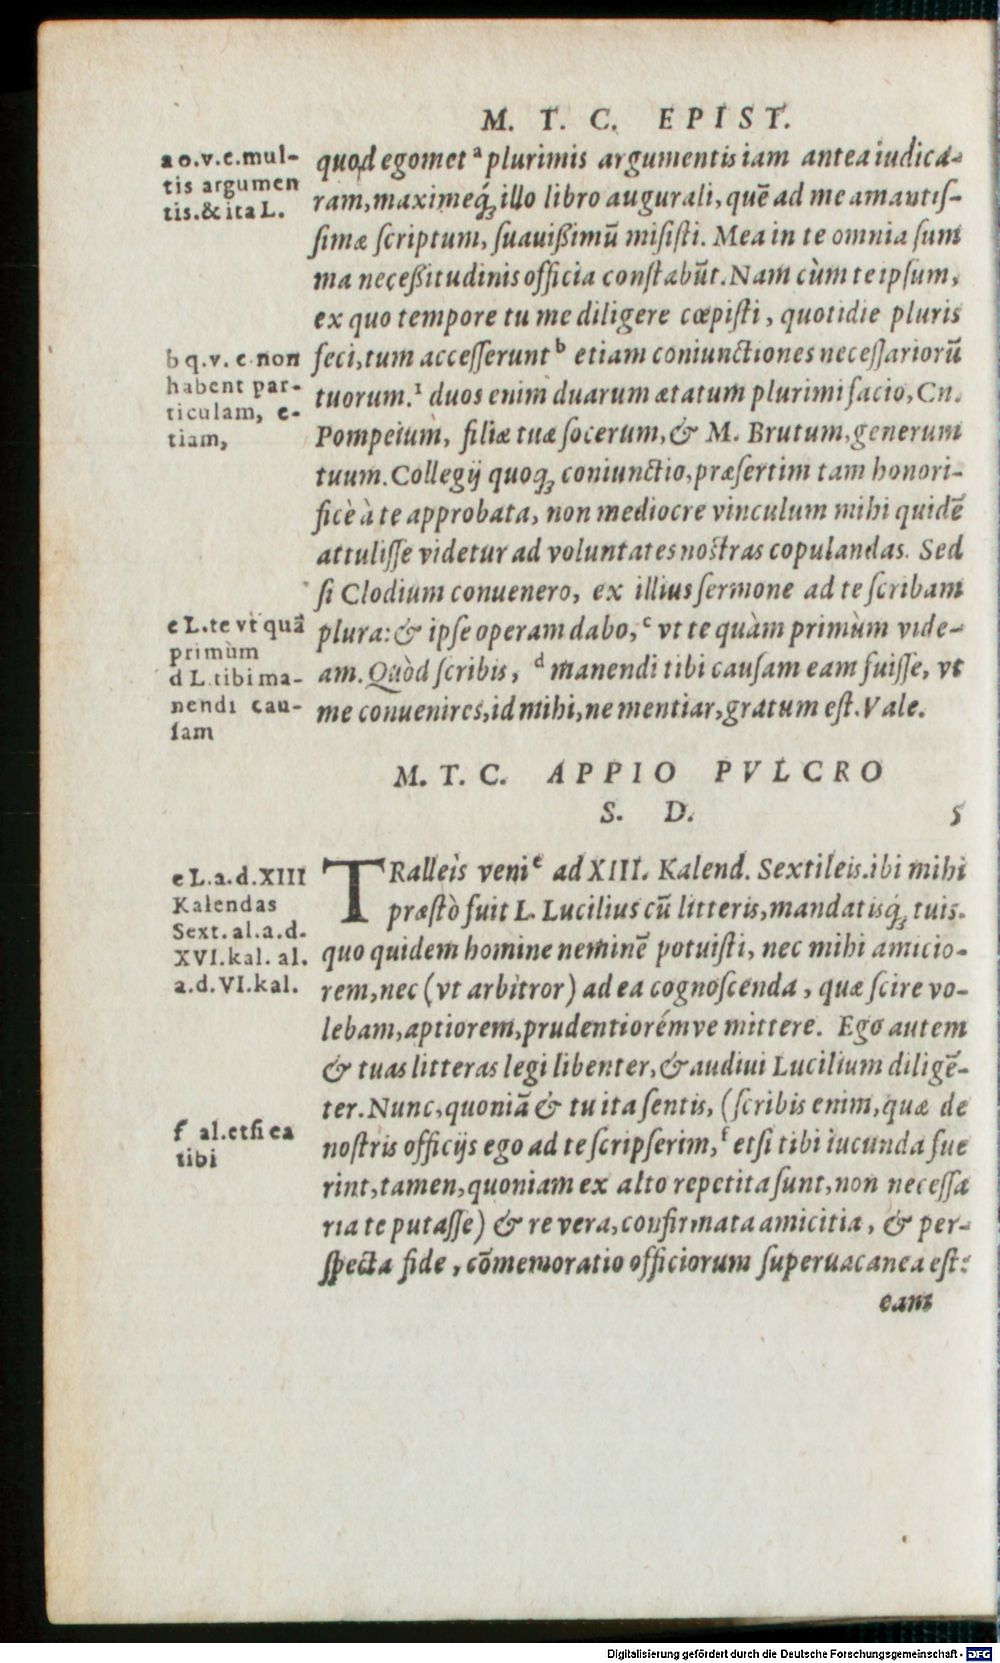 M. T. C. EPIST.
a o.v.c.mul-
tis argumen
tis.&ita L.
quod egomet ᵃ plurimis argumentis iam antea iudica-
ram,maximeq́ꝫ illo libro augurali, quē ad me amantiſ-
ſimæ ſcriptum, ſuauißimū miſiſti. Mea in te omnia ſum
ma neceßitudinis officia conſtabūt. Nam cùm te ipſum,
ex quo tempore tu me diligere cœpiſti, quotidie pluris
b q.v. c non
habent par-
ticulam, e-
tiam,
feci,tum acceſſerunt ᵇ etiam coniunctiones neceſſariorū
tuorum.¹ duos enim duarum ætatum plurimi facio, Cn.
Pompeium, filiæ tuæ ſocerum,& M. Brutum,generum
tuum. Collegij quoqꝫ coniunctio,præſertim tam honori-
ficè à te approbata, non mediocre vinculum mihi quidē
attuliſſe videtur ad voluntates noſtras copulandas. Sed
ſi Clodium conuenero, ex illius ſermone ad te ſcribam
c L.te vt quā
primùm
d L.tibi ma-
nendi cau-
ſam
plura: & ipſe operam dabo, ᶜ vt te quàm primùm vide-
am. Quòd ſcribis, ᵈ manendi tibi cauſam eam fuiſſe, vt
me conuenires,id mihi,ne mentiar,gratum eſt. Vale.
M. T. C. APPIO PVLCRO
S. D. 5
e L.a.d.XIII
Kalendas
Sext. al.a.d.
XVI.kal. al.
a.d.VI.kal.
TRalleis veni ᵉ ad XIII. Kalend. Sextileis.ibi mihi
præſtò fuit L. Lucilius cū litteris,mandatisq́ꝫ tuis.
quo quidem homine neminē potuiſti, nec mihi amicio-
rem,nec (vt arbitror) ad ea cognoſcenda, quæ ſcire vo-
lebam,aptiorem,prudentiorémve mittere. Ego autem
& tuas litteras legi libenter,& audiui Lucilium diligē-
ter. Nunc,quoniā & tu ita ſentis, (ſcribis enim,quæ de
f al.etſi ea
tibi
noſtris officijs ego ad te ſcripſerim, ᶠ etſi tibi iucunda fue
rint,tamen,quoniam ex alto repetita ſunt,non neceſſa
ria te putaſſe) & re vera,confirmata amicitia, & per-
ſpecta fide, cōmemoratio officiorum ſuperuacanea eſt:
eam
Digitalisierung gefördert durch die Deutsche Forschungsgemeinschaft - DFG